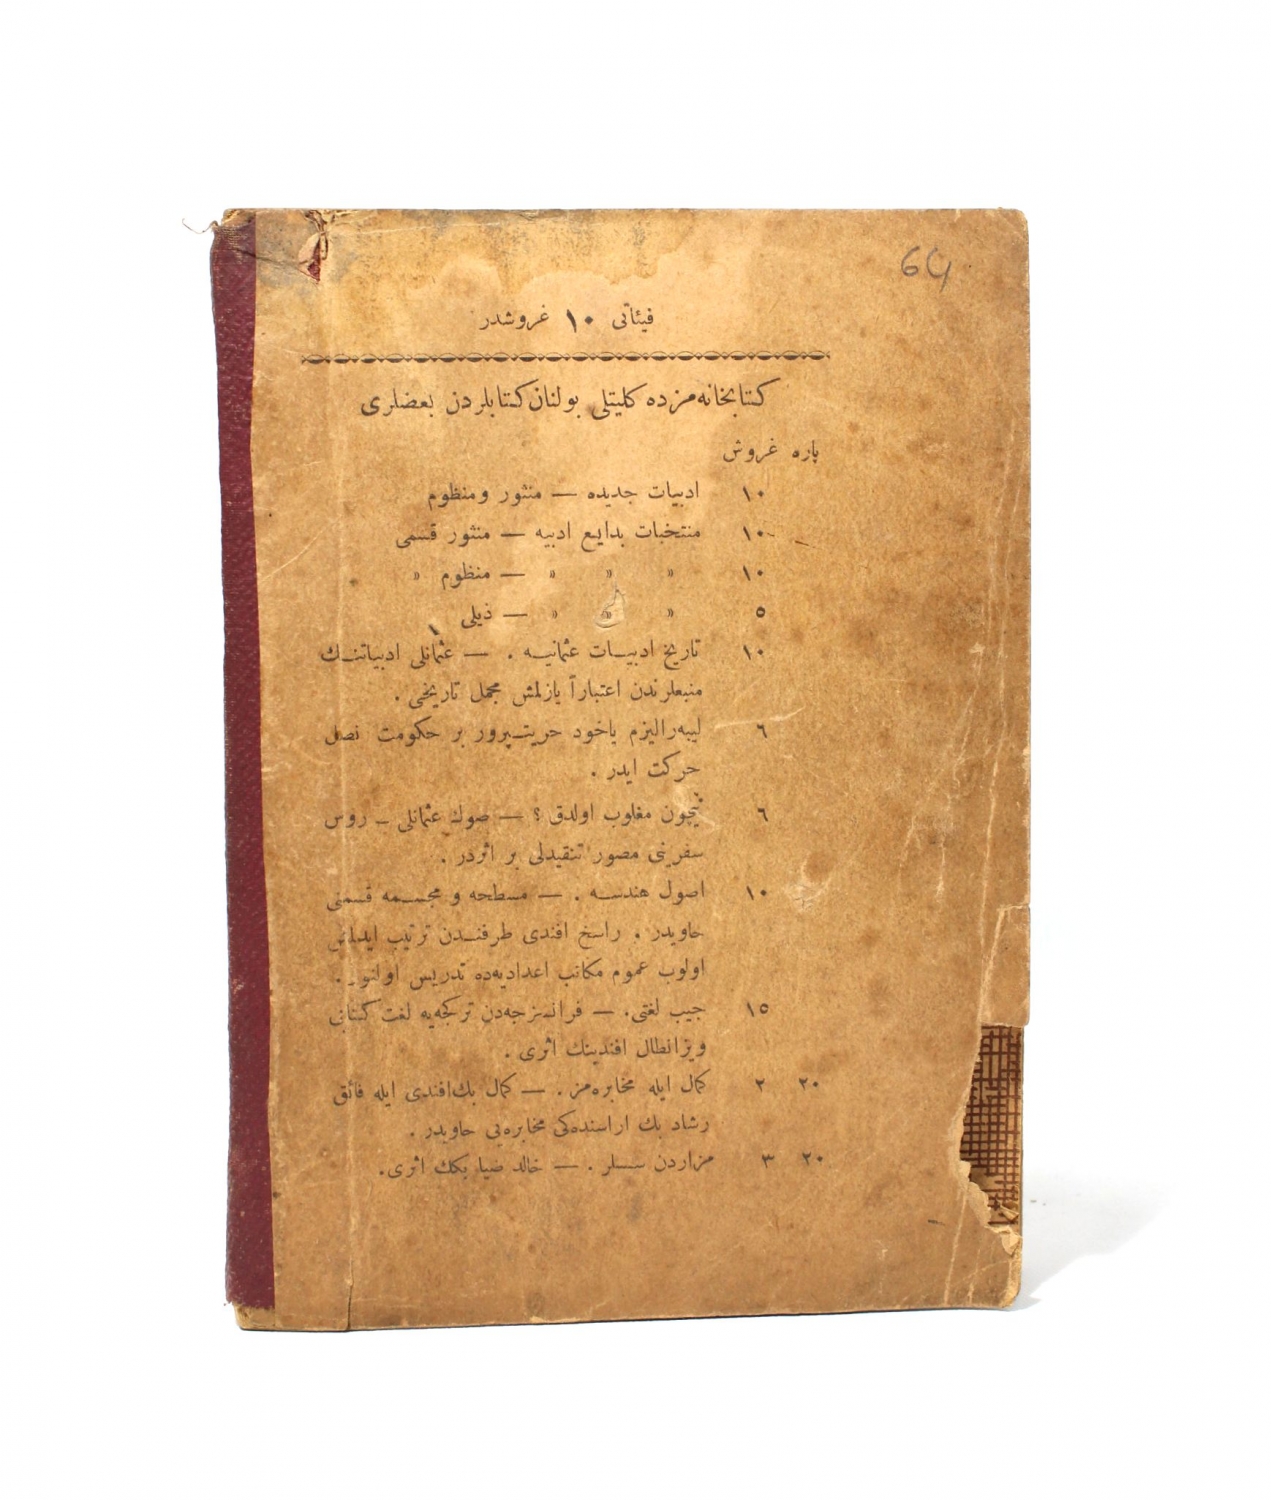 64
فيئاتى ١٠ غروشدر
كتابخانه‌مزده كليتلى بولنان كتابلردن بعضلرى
پاره غروش
١٠ ادبيات جديده — منثور ومنظوم
١٠ منتخبات بدايع ادبيه — منثور قسمى
١٠ » » » — منظوم »
٥ » » » — ذيلى
١٠ تاريخ ادبيات عثمانيه . — عثمانلى ادبياتنك
منبعلرندن اعتباراً يازلمش مجمل تاريخى .
٦ ليبه‌راليزم ياخود حريت‌پرور بر حكومت نصل
حركت ايدر .
٦ نيچون مغلوب اولدق ؟ — صوك عثمانلى ـ روس
سفرينى مصور تنقيدلى بر اثردر .
١٠ اصول هندسه . — مسطحه و مجسمه قسمنى
حاويدر . راسخ افندى طرفندن ترتيب ايدلمش
اولوب عموم مكاتب اعداديه‌ده تدريس اولنور .
١٥ جيب لغتى. — فرانسزجه‌دن تركجه‌يه لغت كتابى
ويزانطال افندينك اثرى .
٢٠ ٢ كمال ايله مخابره‌مز . — كمال بك افندى ايله فائق
رشاد بك اراسنده‌كى مخابره‌يى حاويدر .
٢٠ ٣ مزاردن سسلر . — خالد ضيا بكك اثرى.